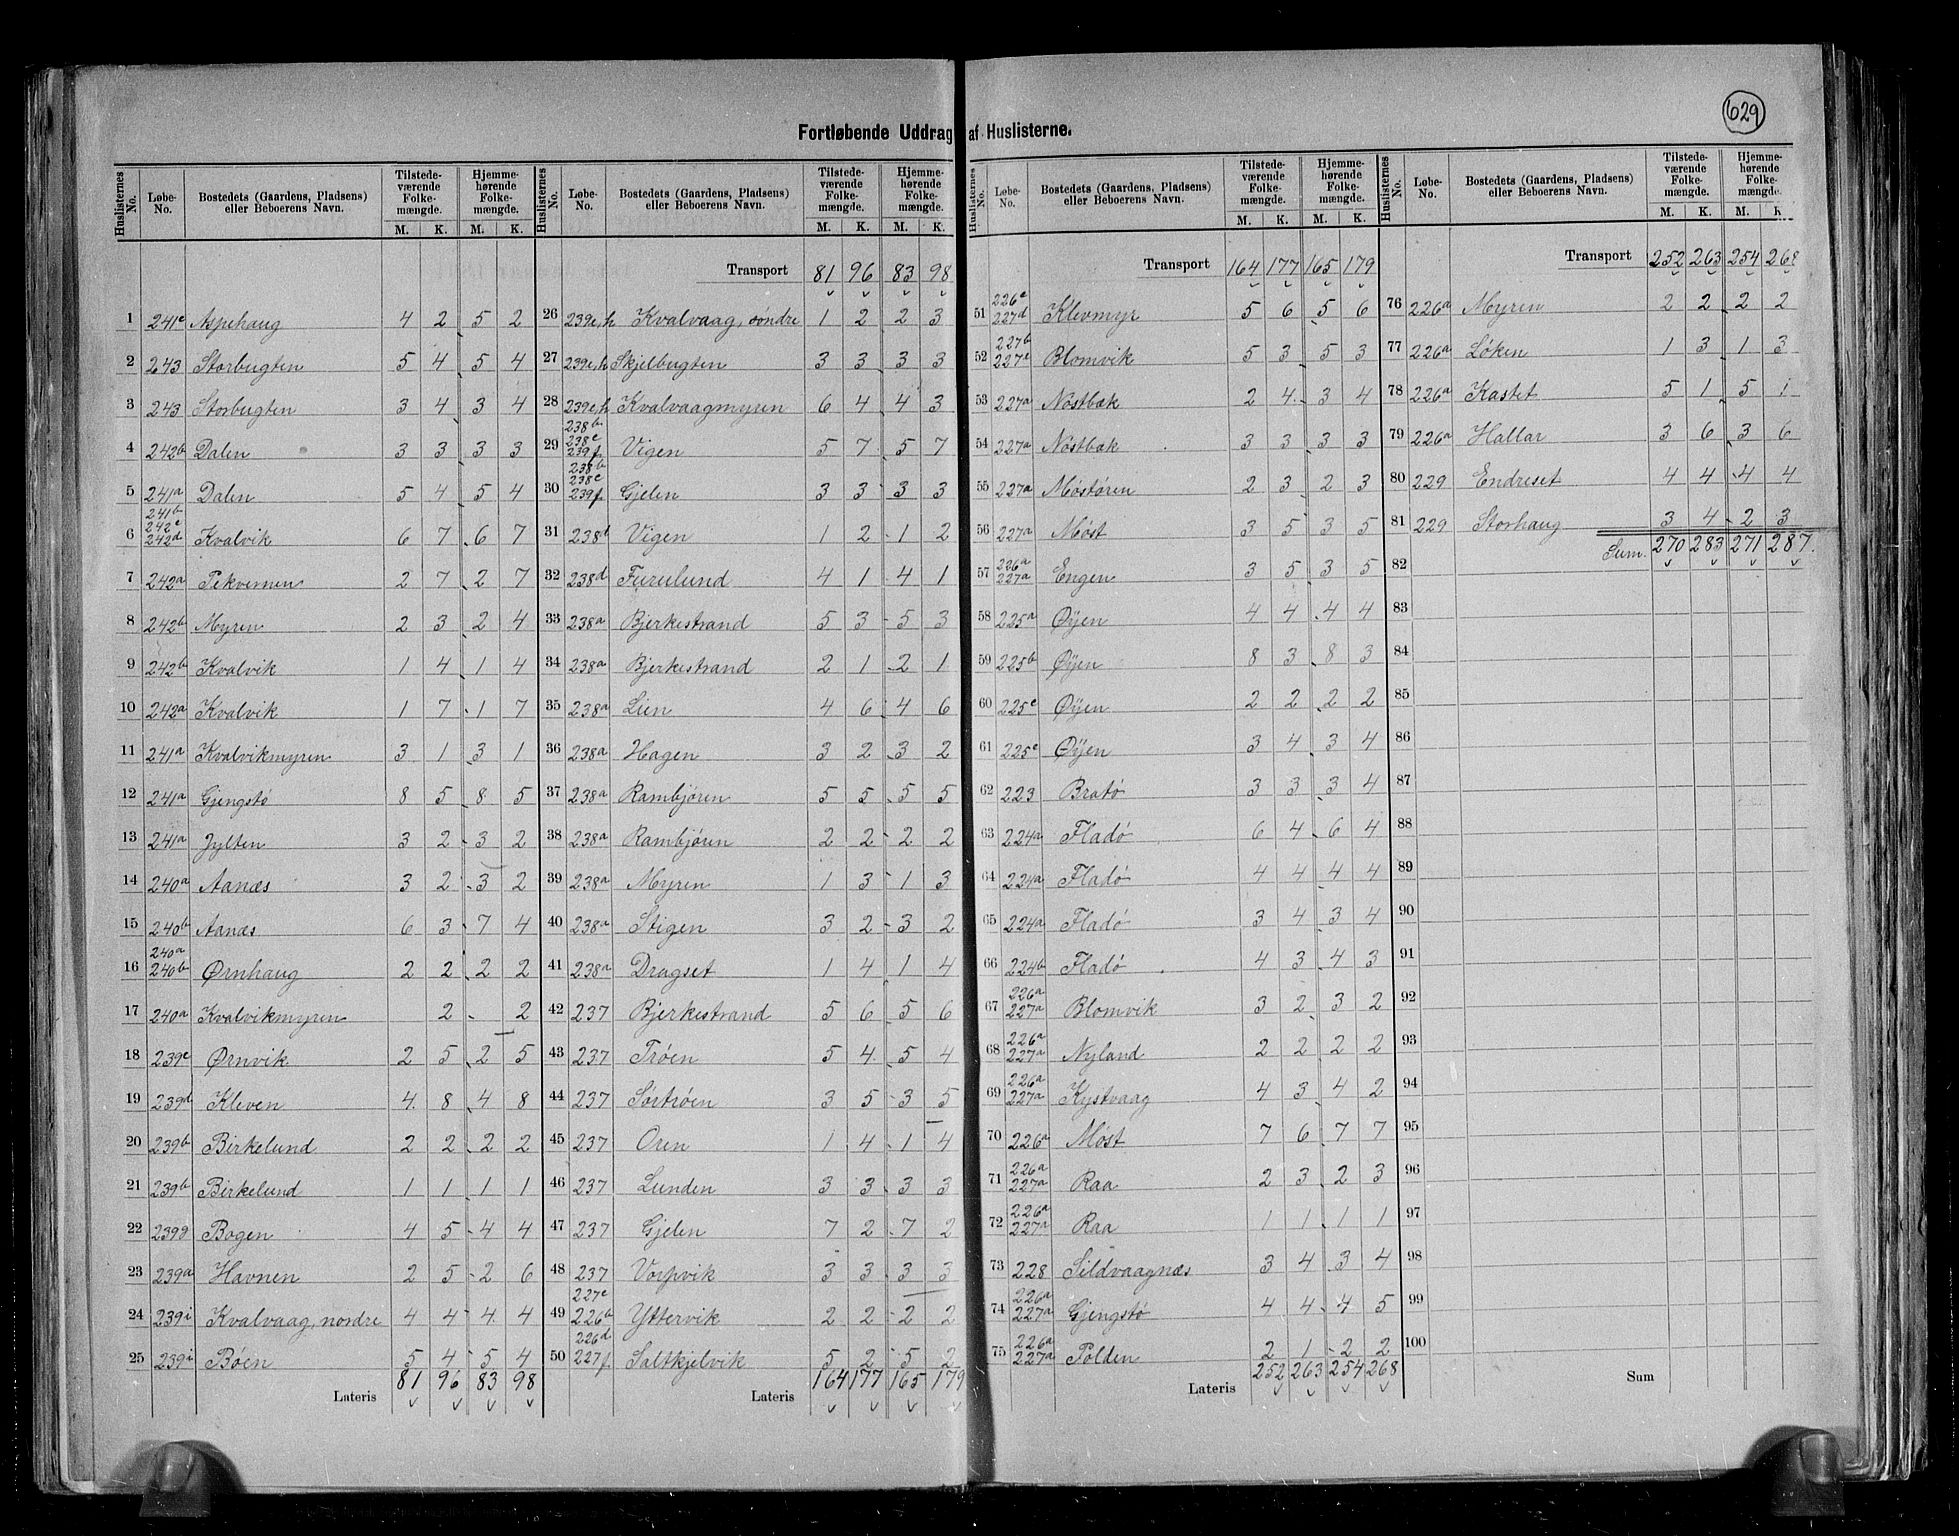 629
Fortløbende Uddrag af Huslisterne.
Huslisternes No. Løbe-No. Bostedets (Gaardens, Pladsens) eller Beboerens Navn. Tilstedeværende Folkemængde. M. K. Hjemmehørende Folkemængde. M. K.
1 241c Aspehaug 4 2 5 2
2 243 Storbugten 5 4 5 4
3 243 Storbugten 3 4 3 4
4 242b Dalen 3 3 3 3
5 241a Dalen 5 4 5 4
6 241b 242c 242d Kvalvik 6 7 6 7
7 242a Tekvernen 2 7 2 7
8 242b Myren 2 3 2 4
9 242b Kvalvik 1 4 1 4
10 242a Kvalvik 1 7 1 7
11 241a Kvalvikmyren 3 1 3 1
12 241a Gjengstø 8 5 8 5
13 241a Jylten 3 2 3 2
14 240a Aanæs 3 2 3 2
15 240b Aanæs 6 3 7 4
16 240a 240b Ørnhaug 2 2 2 2
17 240a Kvalvikmyren 2 2
18 239c Ørnvik 2 5 2 5
19 239d Kleven 4 8 4 8
20 239b Birkelund 2 2 2 2
21 239b Birkelund 1 1 1 1
22 239g Bogen 4 5 4 4
23 239a Havnen 2 5 2 6
24 239i Kvalvaag, nordre 4 4 4 4
25 239i Bøen 5 4 5 4
Lateris 81 96 83 98
Huslisternes No. Løbe-No. Bostedets (Gaardens, Pladsens) eller Beboerens Navn. Tilstedeværende Folkemængde. M. K. Hjemmehørende Folkemængde. M. K.
Transport 81 96 83 98
26 239e,h Kvalvaag, søndre 1 2 2 3
27 239e,h Skjelbugten 3 3 3 3
28 239e,h Kvalvaagmyren 6 4 4 3
29 238b 238c 239f Vigen 5 7 5 7
30 238b 238c 239f Gjelen 3 3 3 3
31 238d Vigen 1 2 1 2
32 238d Furulund 4 1 4 1
33 238a Bjerkestrand 5 3 5 3
34 238a Bjerkestrand 2 1 2 1
35 238a Lien 4 6 4 6
36 238a Hagen 3 2 3 2
37 238a Rambjøren 5 5 5 5
38 238a Rambjøren 2 2 2 2
39 238a Myren 1 3 1 3
40 238a Stigen 3 2 3 2
41 238a Dragset 1 4 1 4
42 237 Bjerkestrand 5 6 5 6
43 237 Trøen 5 4 5 4
44 237 Sørtrøen 3 5 3 5
45 237 Oren 1 4 1 4
46 237 Lunden 3 3 3 3
47 237 Gjelen 7 2 7 2
48 237 Vorpvik 3 3 3 3
49 227c 226b Yttervik 2 2 2 2
50 226d 227f Saltkjelvik 5 2 5 2
Lateris 164 177 165 179
Huslisternes No. Løbe-No. Bostedets (Gaardens, Pladsens) eller Beboerens Navn. Tilstedeværende Folkemængde. M. K. Hjemmehørende Folkemængde. M. K.
Transport 164 177 165 179
51 226c 227d Klevmyr 5 6 5 6
52 227b 227e Blomvik 5 3 5 3
53 227a Nøstbæk 2 4 3 4
54 227a Nøstbæk 3 3 3 3
55 227a Møstøren 2 3 2 3
56 227a Møst 3 5 3 5
57 226a 227a Engen 3 5 3 5
58 225a Øyen 4 4 4 4
59 225b Øyen 8 3 8 3
60 225c Øyen 2 2 2 2
61 225c Øyen 3 4 3 4
62 223 Bratø 3 3 3 4
63 224a Fladø 6 4 6 4
64 224a Fladø 4 4 4 4
65 224a Fladø 3 4 3 4
66 224b Fladø 4 3 4 3
67 226a 227a Blomvik 3 2 3 2
68 226a 227a Nyland 2 2 2 2
69 226a 227a Kystvaag 4 3 4 2
70 226a Møst 7 6 7 7
71 226a 227a Raa 2 3 2 3
72 226a 227a Raa 1 1 1 1
73 228 Sildvaagnæs 3 4 3 4
74 226a 227a Gjengstø 4 4 4 5
75 226a 227a Polden 2 1 2 2
Lateris 252 263 254 268
Huslisternes No. Løbe-No. Bostedets (Gaardens, Pladsens) eller Beboerens Navn. Tilstedeværende Folkemængde. M. K. Hjemmehørende Folkemængde. M. K.
Transport 252 263 254 268
76 226a Myren 2 2 2 2
77 226a Løken 1 3 1 3
78 226a Kastet 5 1 5 1
79 226a Hallar 3 6 3 6
80 229 Endreset 4 4 4 4
81 229 Storhaug 3 4 2 3
82 Sum. 270 283 271 287.
83
84
85
86
87
88
89
90
91
92
93
94
95
96
97
98
99
100
Sum